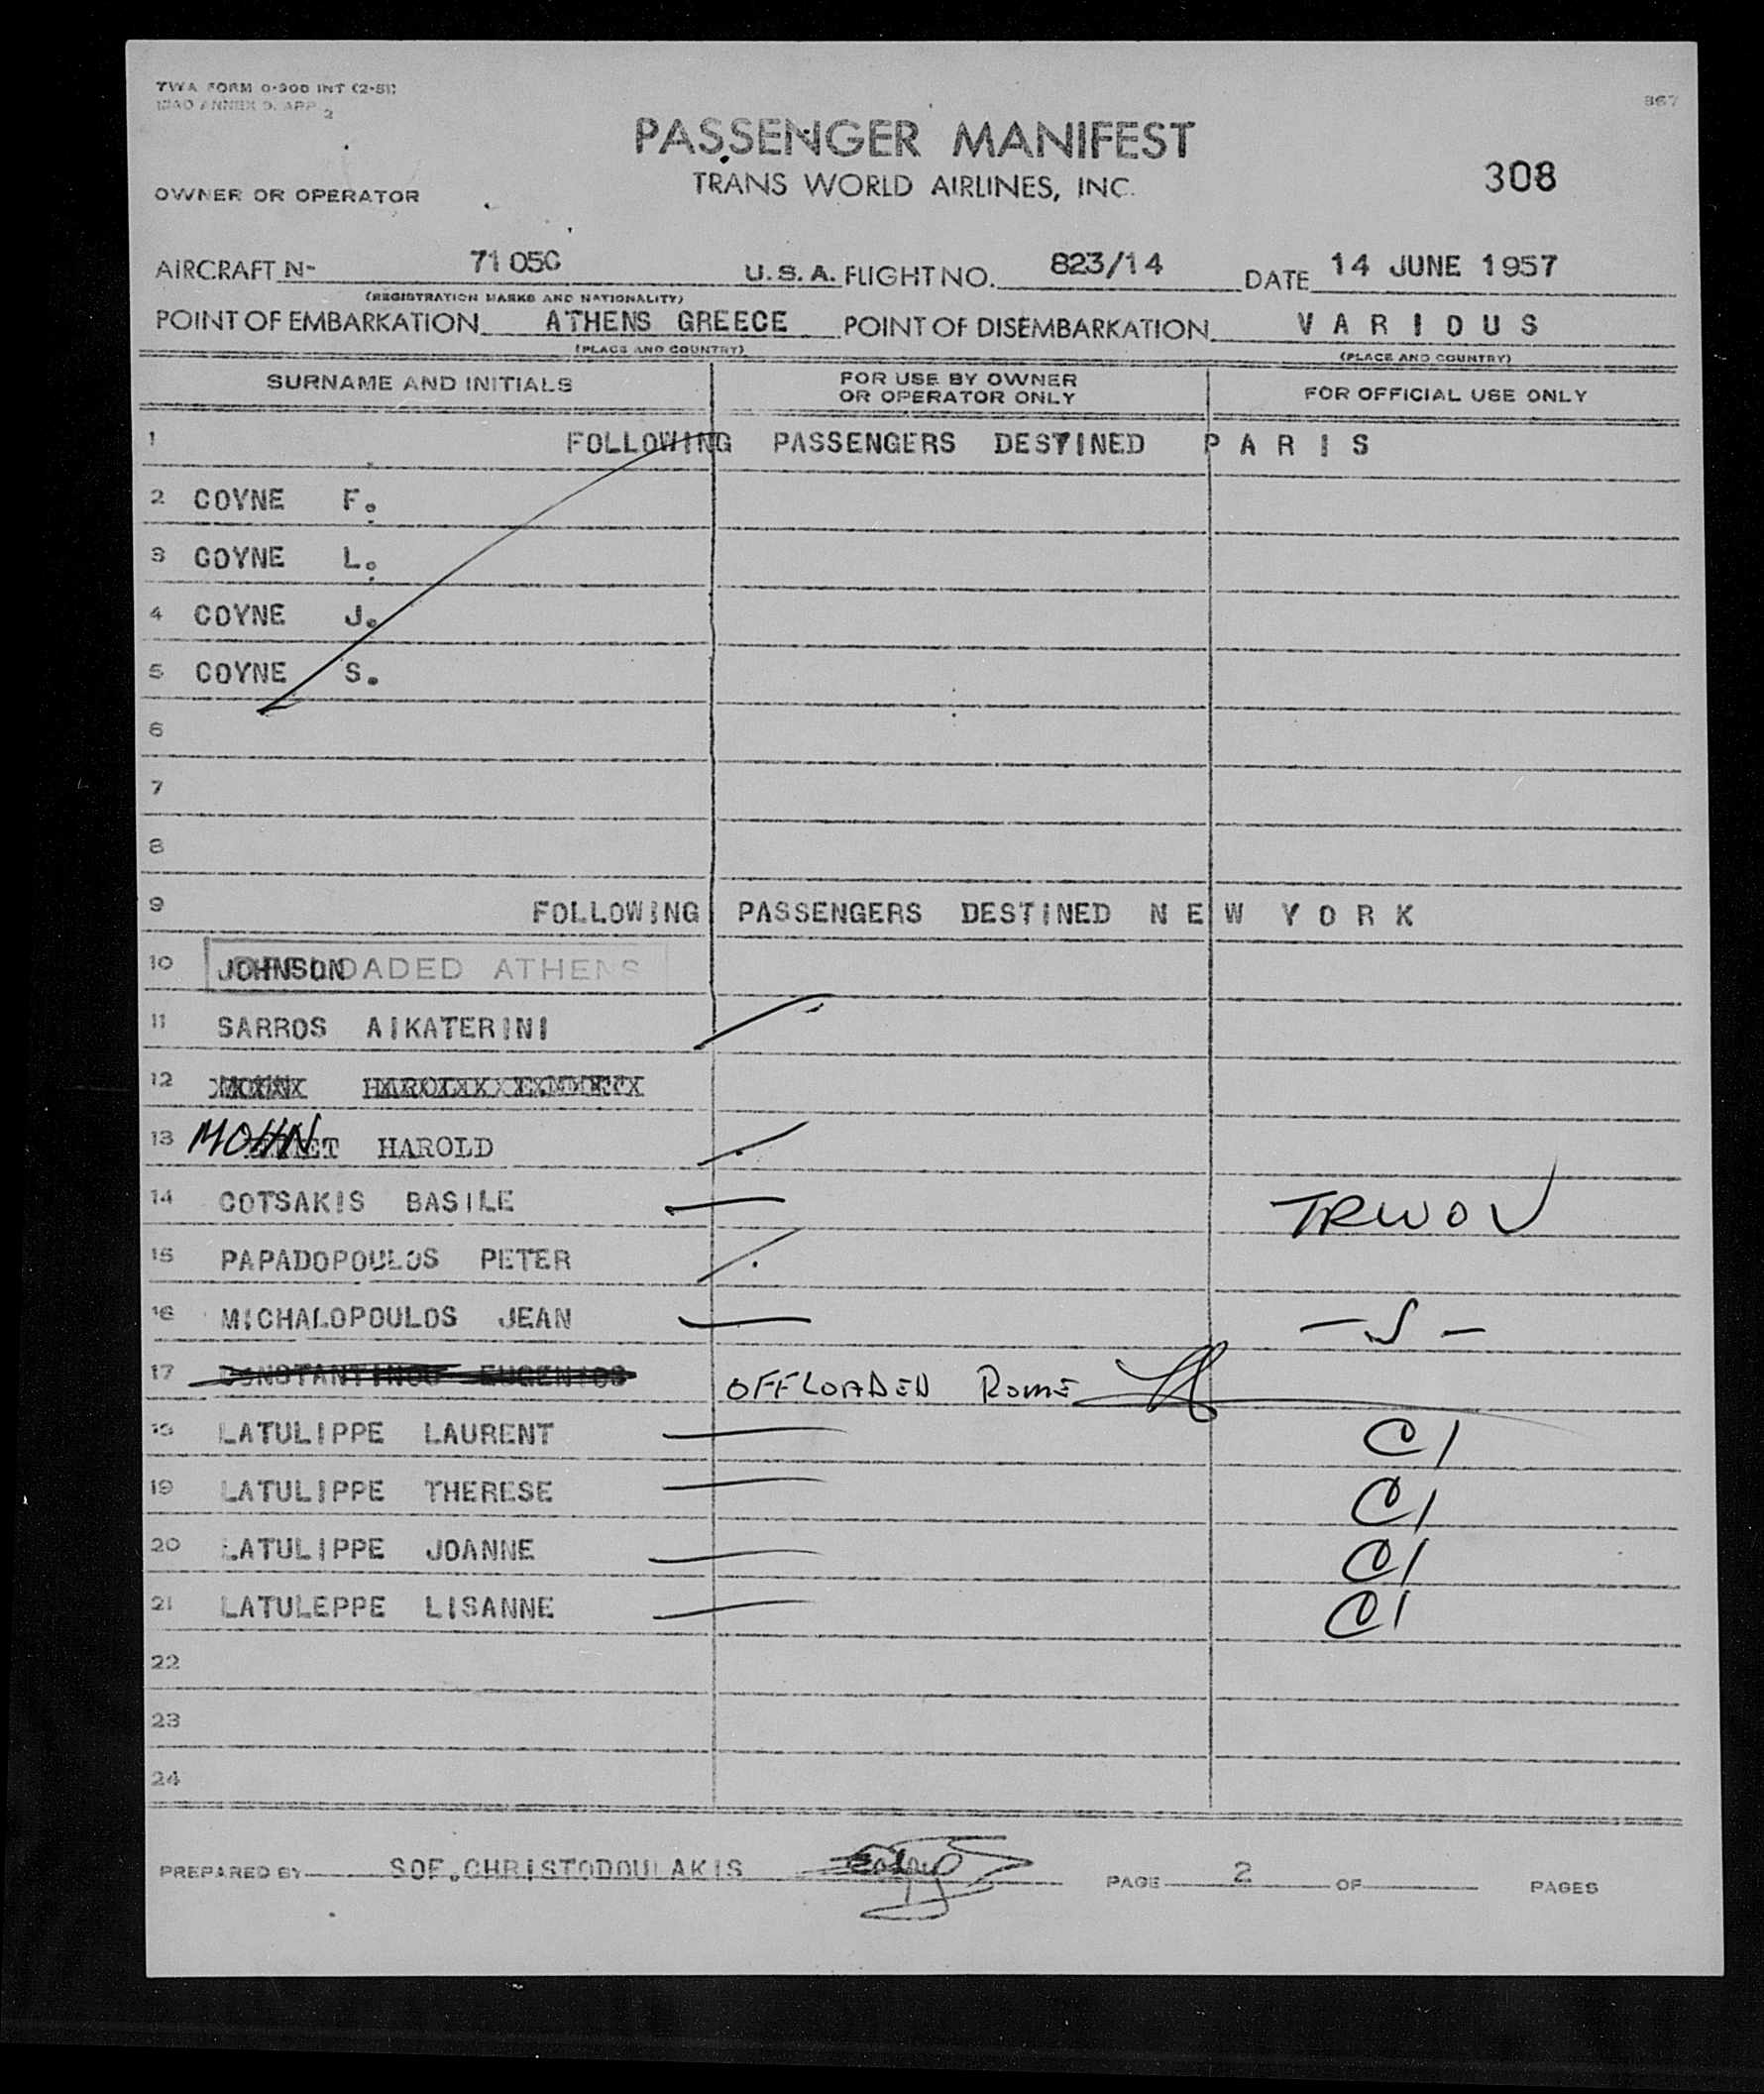 TWA FORM 0-300 INT (2-51)
ICAO ANNEX 9, APP. 2
367
PASSENGER MANIFEST
TRANS WORLD AIRLINES, INC.
308
OWNER OR OPERATOR
AIRCRAFT N- 7105C U.S.A. FLIGHT NO. 823/14 DATE 14 JUNE 1957
(REGISTRATION MARKS AND NATIONALITY)
POINT OF EMBARKATION ATHENS GREECE POINT OF DISEMBARKATION VARIOUS
(PLACE AND COUNTRY) (PLACE AND COUNTRY)
SURNAME AND INITIALS FOR USE BY OWNER OR OPERATOR ONLY FOR OFFICIAL USE ONLY
1 FOLLOWING PASSENGERS DESTINED PARIS
2 COYNE F.
3 COYNE L.
4 COYNE J.
5 COYNE S.
6
7
8
9 FOLLOWING PASSENGERS DESTINED NEW YORK
10 JOHNSON OADED ATHENS
11 SARROS AIKATERINI
12
13 MOHN HAROLD
14 COTSAKIS BASILE TRWOV
15 PAPADOPOULOS PETER
16 MICHALOPOULOS JEAN
17 CONSTANTINOU EUGENIOS OFFLOADED ROME
18 LATULIPPE LAURENT C1
19 LATULIPPE THERESE C1
20 LATULIPPE JOANNE C1
21 LATULEPPE LISANNE C1
22
23
24
PREPARED BY SOF.CHRISTODOULAKIS PAGE 2 OF PAGES